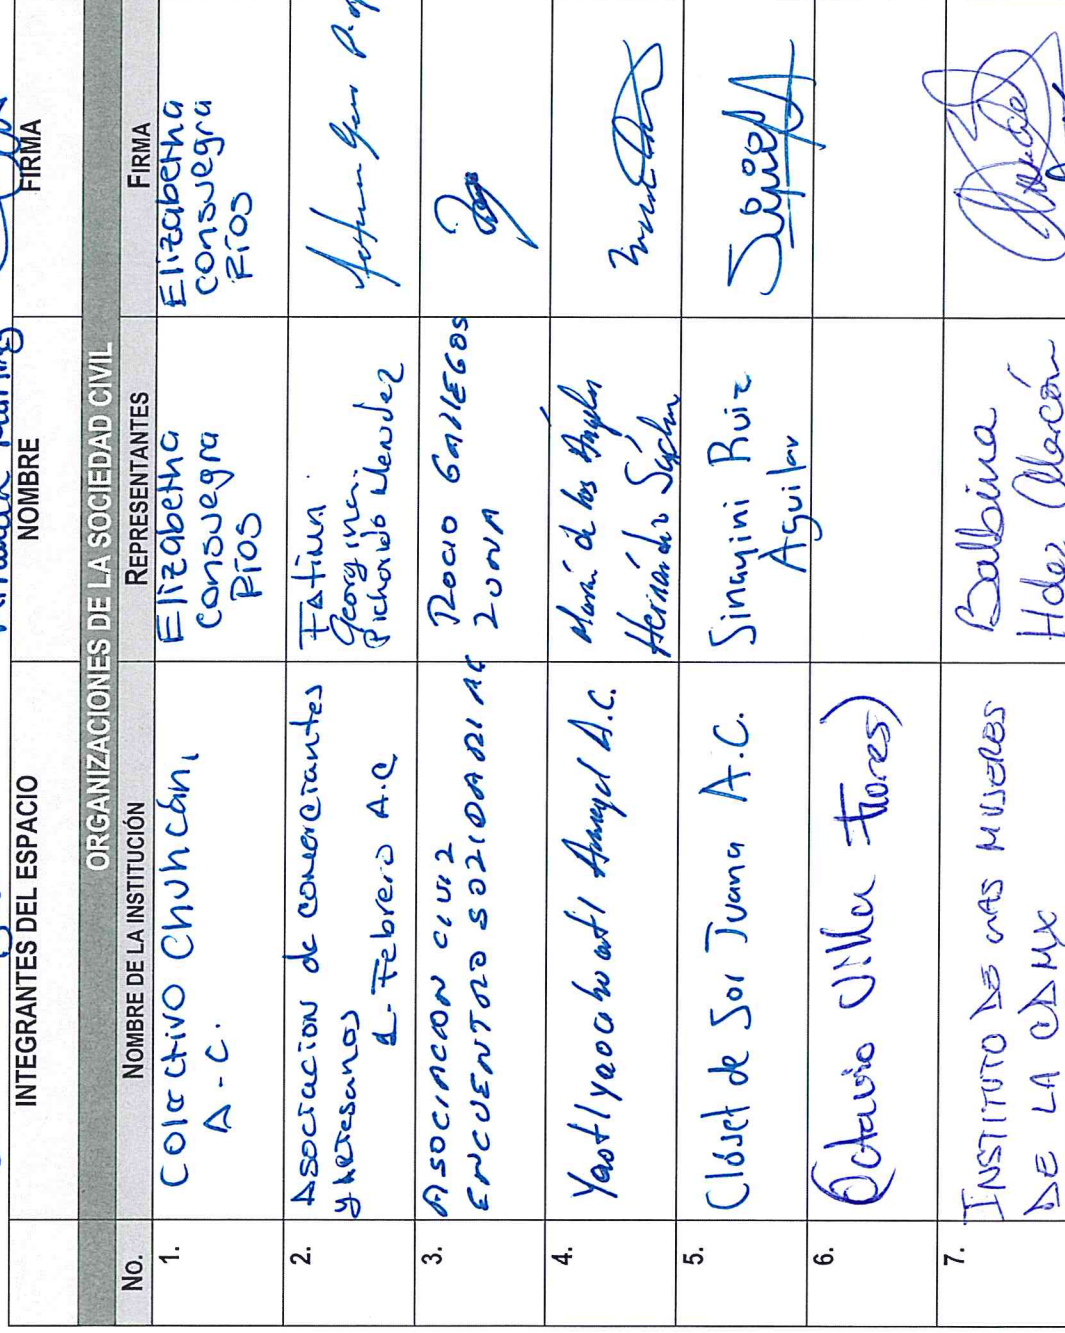 INTEGRANTES DEL ESPACIO NOMBRE FIRMA
ORGANIZACIONES DE LA SOCIEDAD CIVIL
No. NOMBRE DE LA INSTITUCIÓN REPRESENTANTES FIRMA
1.
Colectivo Chuhcán,
A.C.
Elizabetha
Consuegra
Ríos
Elizabetha
Consuegra
Ríos
2.
Asociacion de comerciantes
y Artesanos
Febrero A.C
Fatima
Georgina
Pichardo Mendez
3.
ASOCIACION CIVIL
ENCUENTRO SOLIDARIO AC
ROCIO GALLEGOS
LUNA
4.
A.C.
María de los Angeles
Hernández
5.
Closet de Sor Juana A.C.
Sinayini Ruiz
Aguilar
6.
(Octavio Villa Flores)
7.
INSTITUTO DE LAS MUJERES
DE LA CDMX
Balbina
Hdez Alarcón